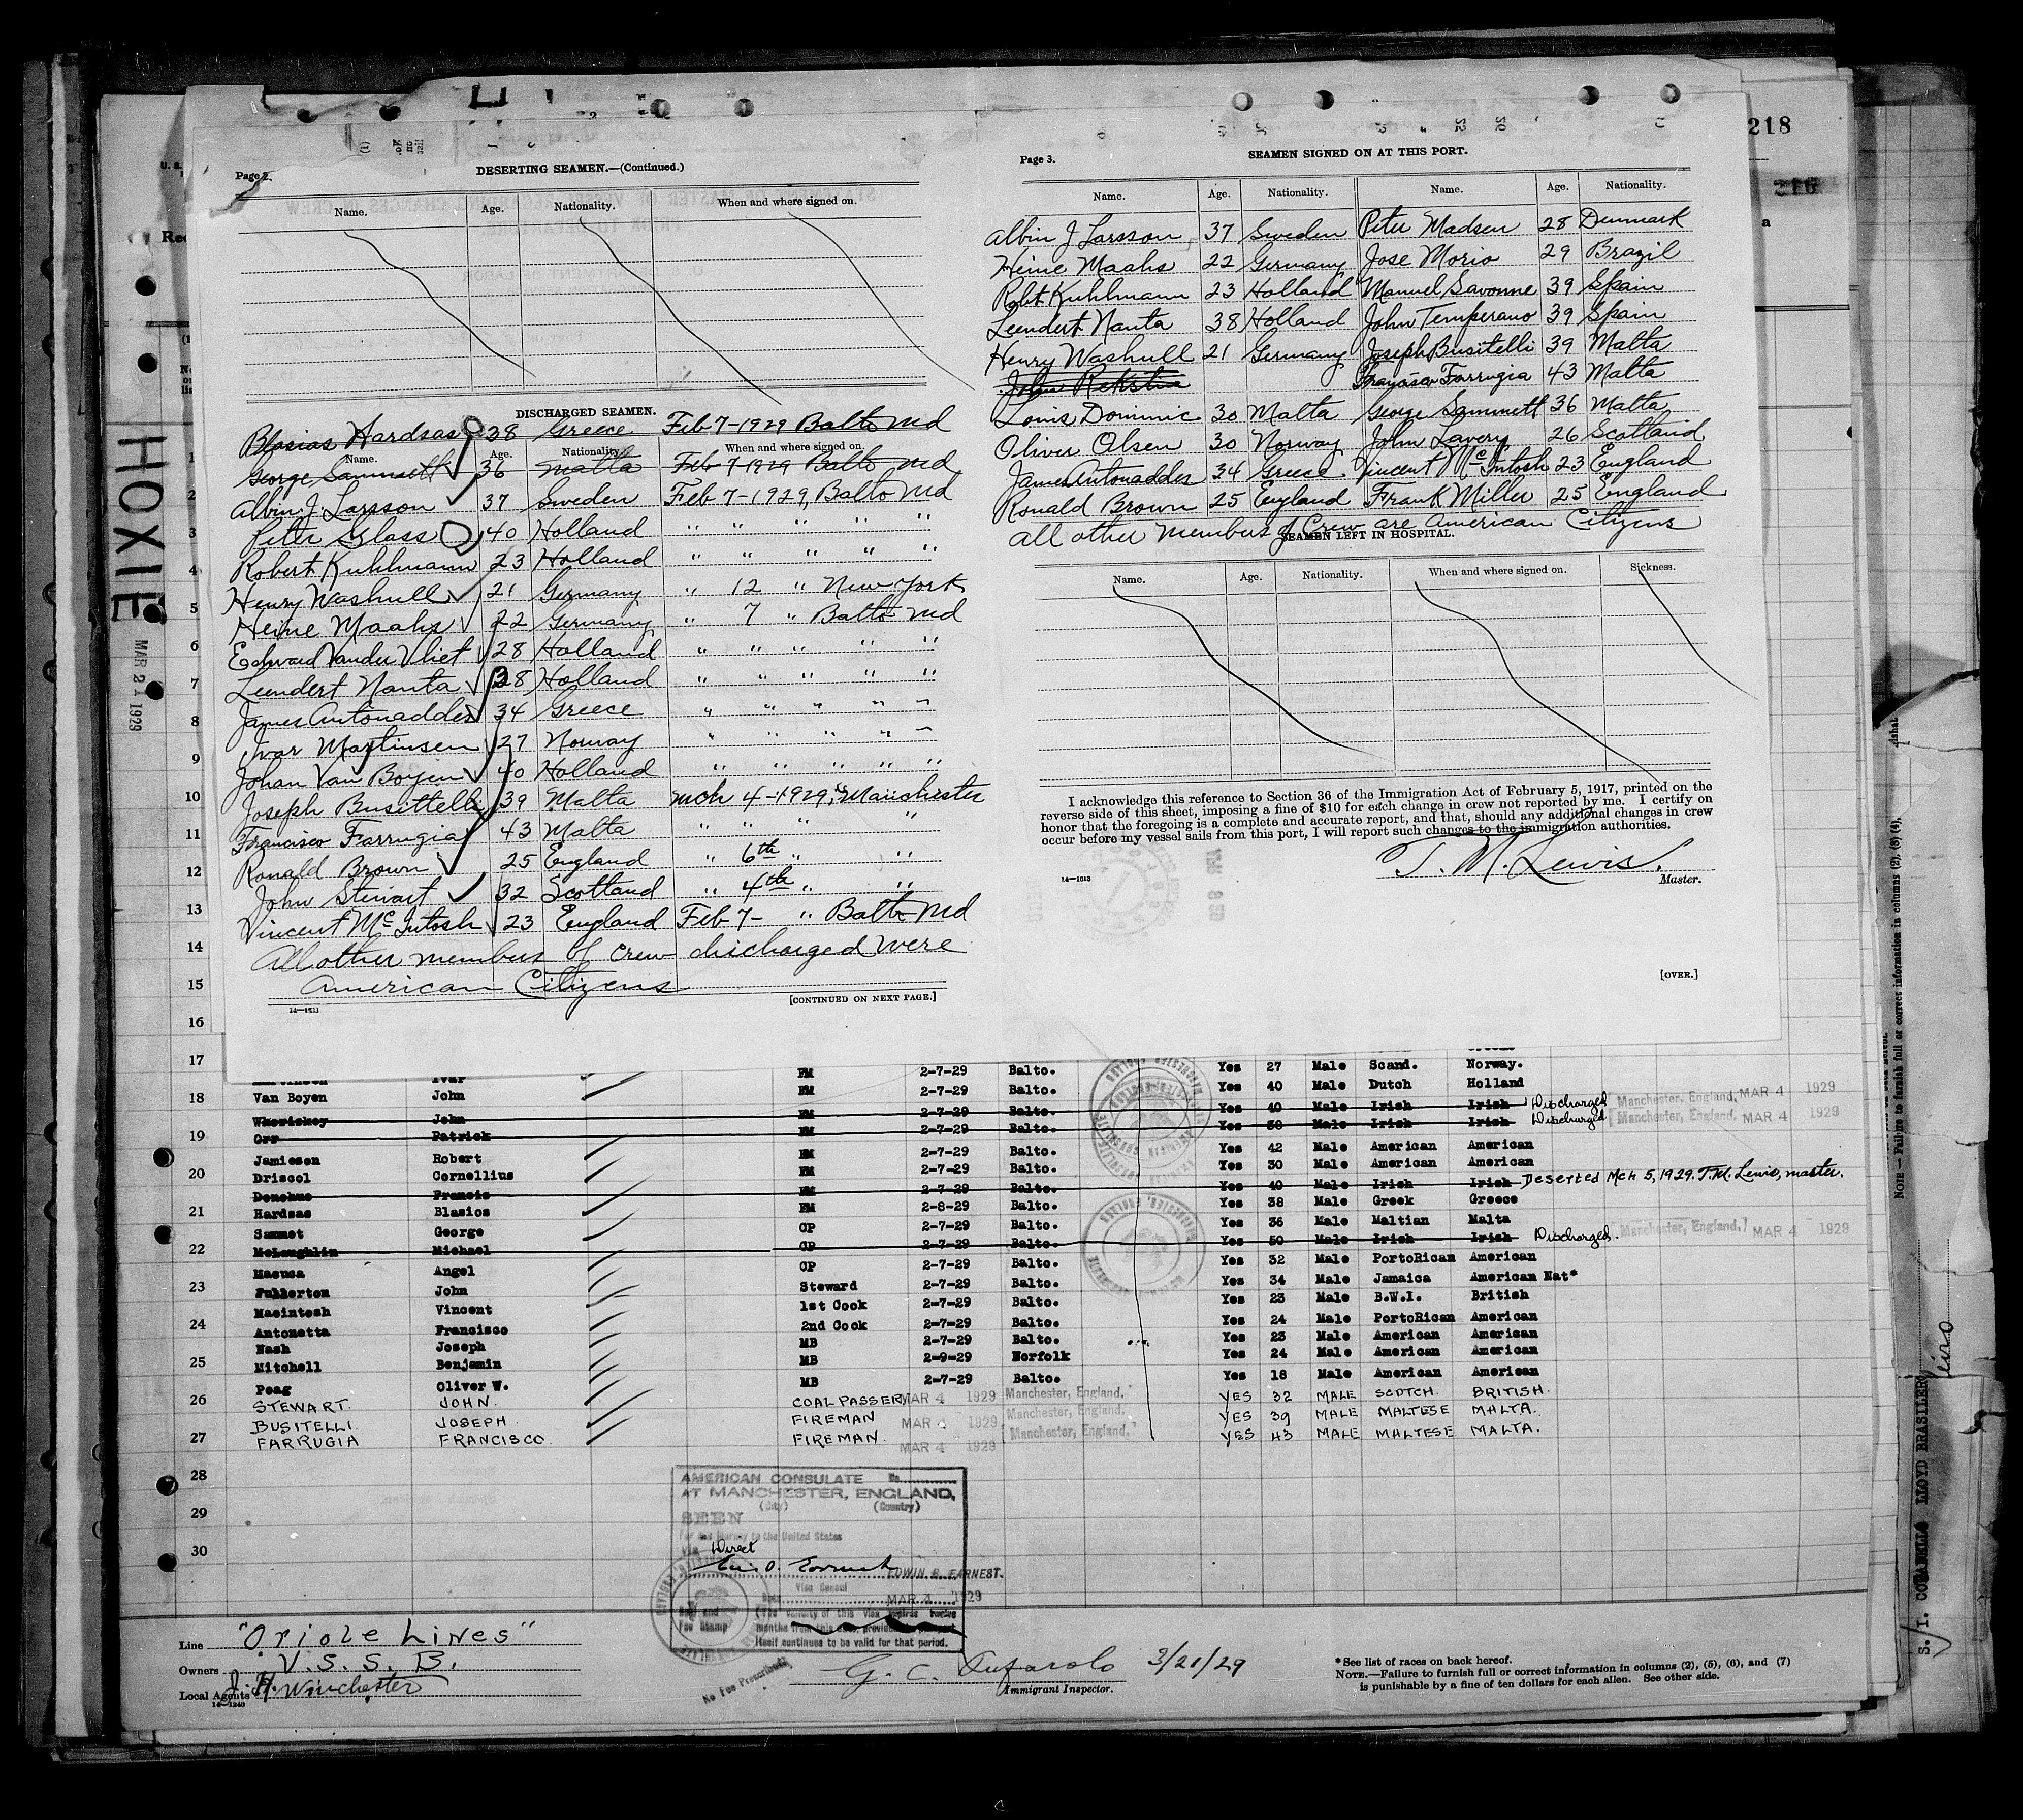 218
216
Page 2.
DESERTING SEAMEN.—(Continued.)
Name. Age. Nationality. When and where signed on.
DISCHARGED SEAMEN.
Blasias Hardsas 38 Greece Feb 7-1929 Balto Md
Name. Age. Nationality. When and where signed on.
George Sammett 36 Malta Feb 7-1929 Balto Md
Albin J. Larsson 37 Sweden Feb 7-1929, Balto Md
Peter Glass 40 Holland " " " " "
Robert Kuhlmann 23 Holland " " " " "
Henry Washull 21 Germany " 12 " New York
Heine Maahs 22 Germany " 7 " Balto Md
Edward Vander Vliet 28 Holland " " " " "
Leendert Nanta 38 Holland " " " " "
James Antonaddes 34 Greece " " " " "
Ivar Martinsen 27 Norway " " " " "
Johan Van Boyen 40 Holland " " " " "
Joseph Busittelli 39 Malta Mch 4-1929, Manchester
Francisco Farrugia 43 Malta " " " "
Ronald Brown 25 England " 6th " "
John Stewart 32 Scotland " 4th " "
Vincent McIntosh 23 England Feb 7- " Balto Md
All other members of crew discharged were
American Citizens
14—1613
[CONTINUED ON NEXT PAGE.]
Page 3.
SEAMEN SIGNED ON AT THIS PORT.
Name. Age. Nationality. Name. Age. Nationality.
Albin J Larsson, 37 Sweden Peter Madsen 28 Denmark
Heine Maahs 22 Germany Jose Morio 29 Brazil
Robt Kuhlmann 23 Holland Manuel Savonne 39 Spain
Leendert Nanta 38 Holland John Temperano 39 Spain
Henry Washull 21 Germany Joseph Busitelli 39 Malta
John Rekstin Francisco Farrugia 43 Malta
Louis Dominic 30 Malta George Sammett 36 Malta
Oliver Olsen 30 Norway John Lavery 26 Scotland
James Antonaddes 34 Greece Vincent McIntosh 23 England
Ronald Brown 25 England Frank Miller 25 England
All other members of Crew are American Citizens
SEAMEN LEFT IN HOSPITAL.
Name. Age. Nationality. When and where signed on. Sickness.
I acknowledge this reference to Section 36 of the Immigration Act of February 5, 1917, printed on the
reverse side of this sheet, imposing a fine of $10 for each change in crew not reported by me. I certify on
honor that the foregoing is a complete and accurate report, and that, should any additional changes in crew
occur before my vessel sails from this port, I will report such changes to the immigration authorities.
T. M. Lewis.
Master.
14—1613
[OVER.]
HOXIE
MAR 21 1929
1
2
3
4
5
6
7
8
9
10
11
12
13
14
15
16
17
18
19
20
21
22
23
24
25
26
27
28
29
30
Ivar FM 2-7-29 Balto. Yes 27 Male Scand. Norway.
Van Boyen John FM 2-7-29 Balto. Yes 40 Male Dutch Holland
Whoriskey John FM 2-7-29 Balto. Yes 40 Male Irish Irish Discharged Manchester, England, MAR 4 1929
Orr Patrick FM 2-7-29 Balto. Yes 38 Male Irish Irish Discharged Manchester, England, MAR 4 1929
Jamiesen Robert FM 2-7-29 Balto. Yes 42 Male American American
Driscol Cornellius FM 2-7-29 Balto. Yes 30 Male American American
Donohue Francis FM 2-7-29 Balto. Yes 40 Male Irish Irish Deserted Mch 5, 1929. T.M. Lewis, master.
Hardsas Blasios FM 2-8-29 Balto. Yes 38 Male Greek Greece
Sammet George CP 2-7-29 Balto. Yes 36 Male Maltian Malta
McLoughlin Michael CP 2-7-29 Balto. Yes 50 Male Irish Irish Discharged. Manchester, England, MAR 4 1929
Masuca Angel CP 2-7-29 Balto. Yes 32 Male PortoRican American
Fullerton John Steward 2-7-29 Balto. Yes 34 Male Jamaica American Nat*
Macintosh Vincent 1st Cook 2-7-29 Balto. Yes 23 Male B.W.I. British
Antonetta Francisco 2nd Cook 2-7-29 Balto. Yes 24 Male PortoRican American
Nash Joseph MB 2-7-29 Balto. Yes 23 Male American American
Mitchell Benjamin MB 2-9-29 Norfolk Yes 24 Male American American
Peag Oliver W. MB 2-7-29 Balto. Yes 18 Male American American
STEWART. JOHN. COAL PASSER MAR 4 1929 Manchester, England. YES 32 MALE SCOTCH BRITISH.
BUSITELLI JOSEPH. FIREMAN MAR 4 1929 Manchester, England. YES 39 MALE MALTESE MALTA.
FARRUGIA FRANCISCO. FIREMAN. MAR 4 1929 Manchester, England. YES 43 MALE MALTESE MALTA.
AMERICAN CONSULATE No.
AT MANCHESTER, ENGLAND,
(City) (Country)
SEEN
For the journey to the United States
Via Direct
EDWIN B. EARNEST.
Vice Consul
Date MAR 4 1929
Seal and Fee Stamp
(The validity of this visa expires twelve
months from this date, provided the passport
itself continues to be valid for that period.
No Fee Prescribed
Line "Oriole Lines"
Owners U.S.S.B.
Local Agents J. H. Winchester
14—1240
G. C. Tufarolo 3/21/29
Immigrant Inspector.
* See list of races on back hereof.
NOTE.—Failure to furnish full or correct information in columns (2), (5), (6), and (7)
is punishable by a fine of ten dollars for each alien. See other side.
NOTE — Failure to furnish full or correct information in columns (2), (3), (4),